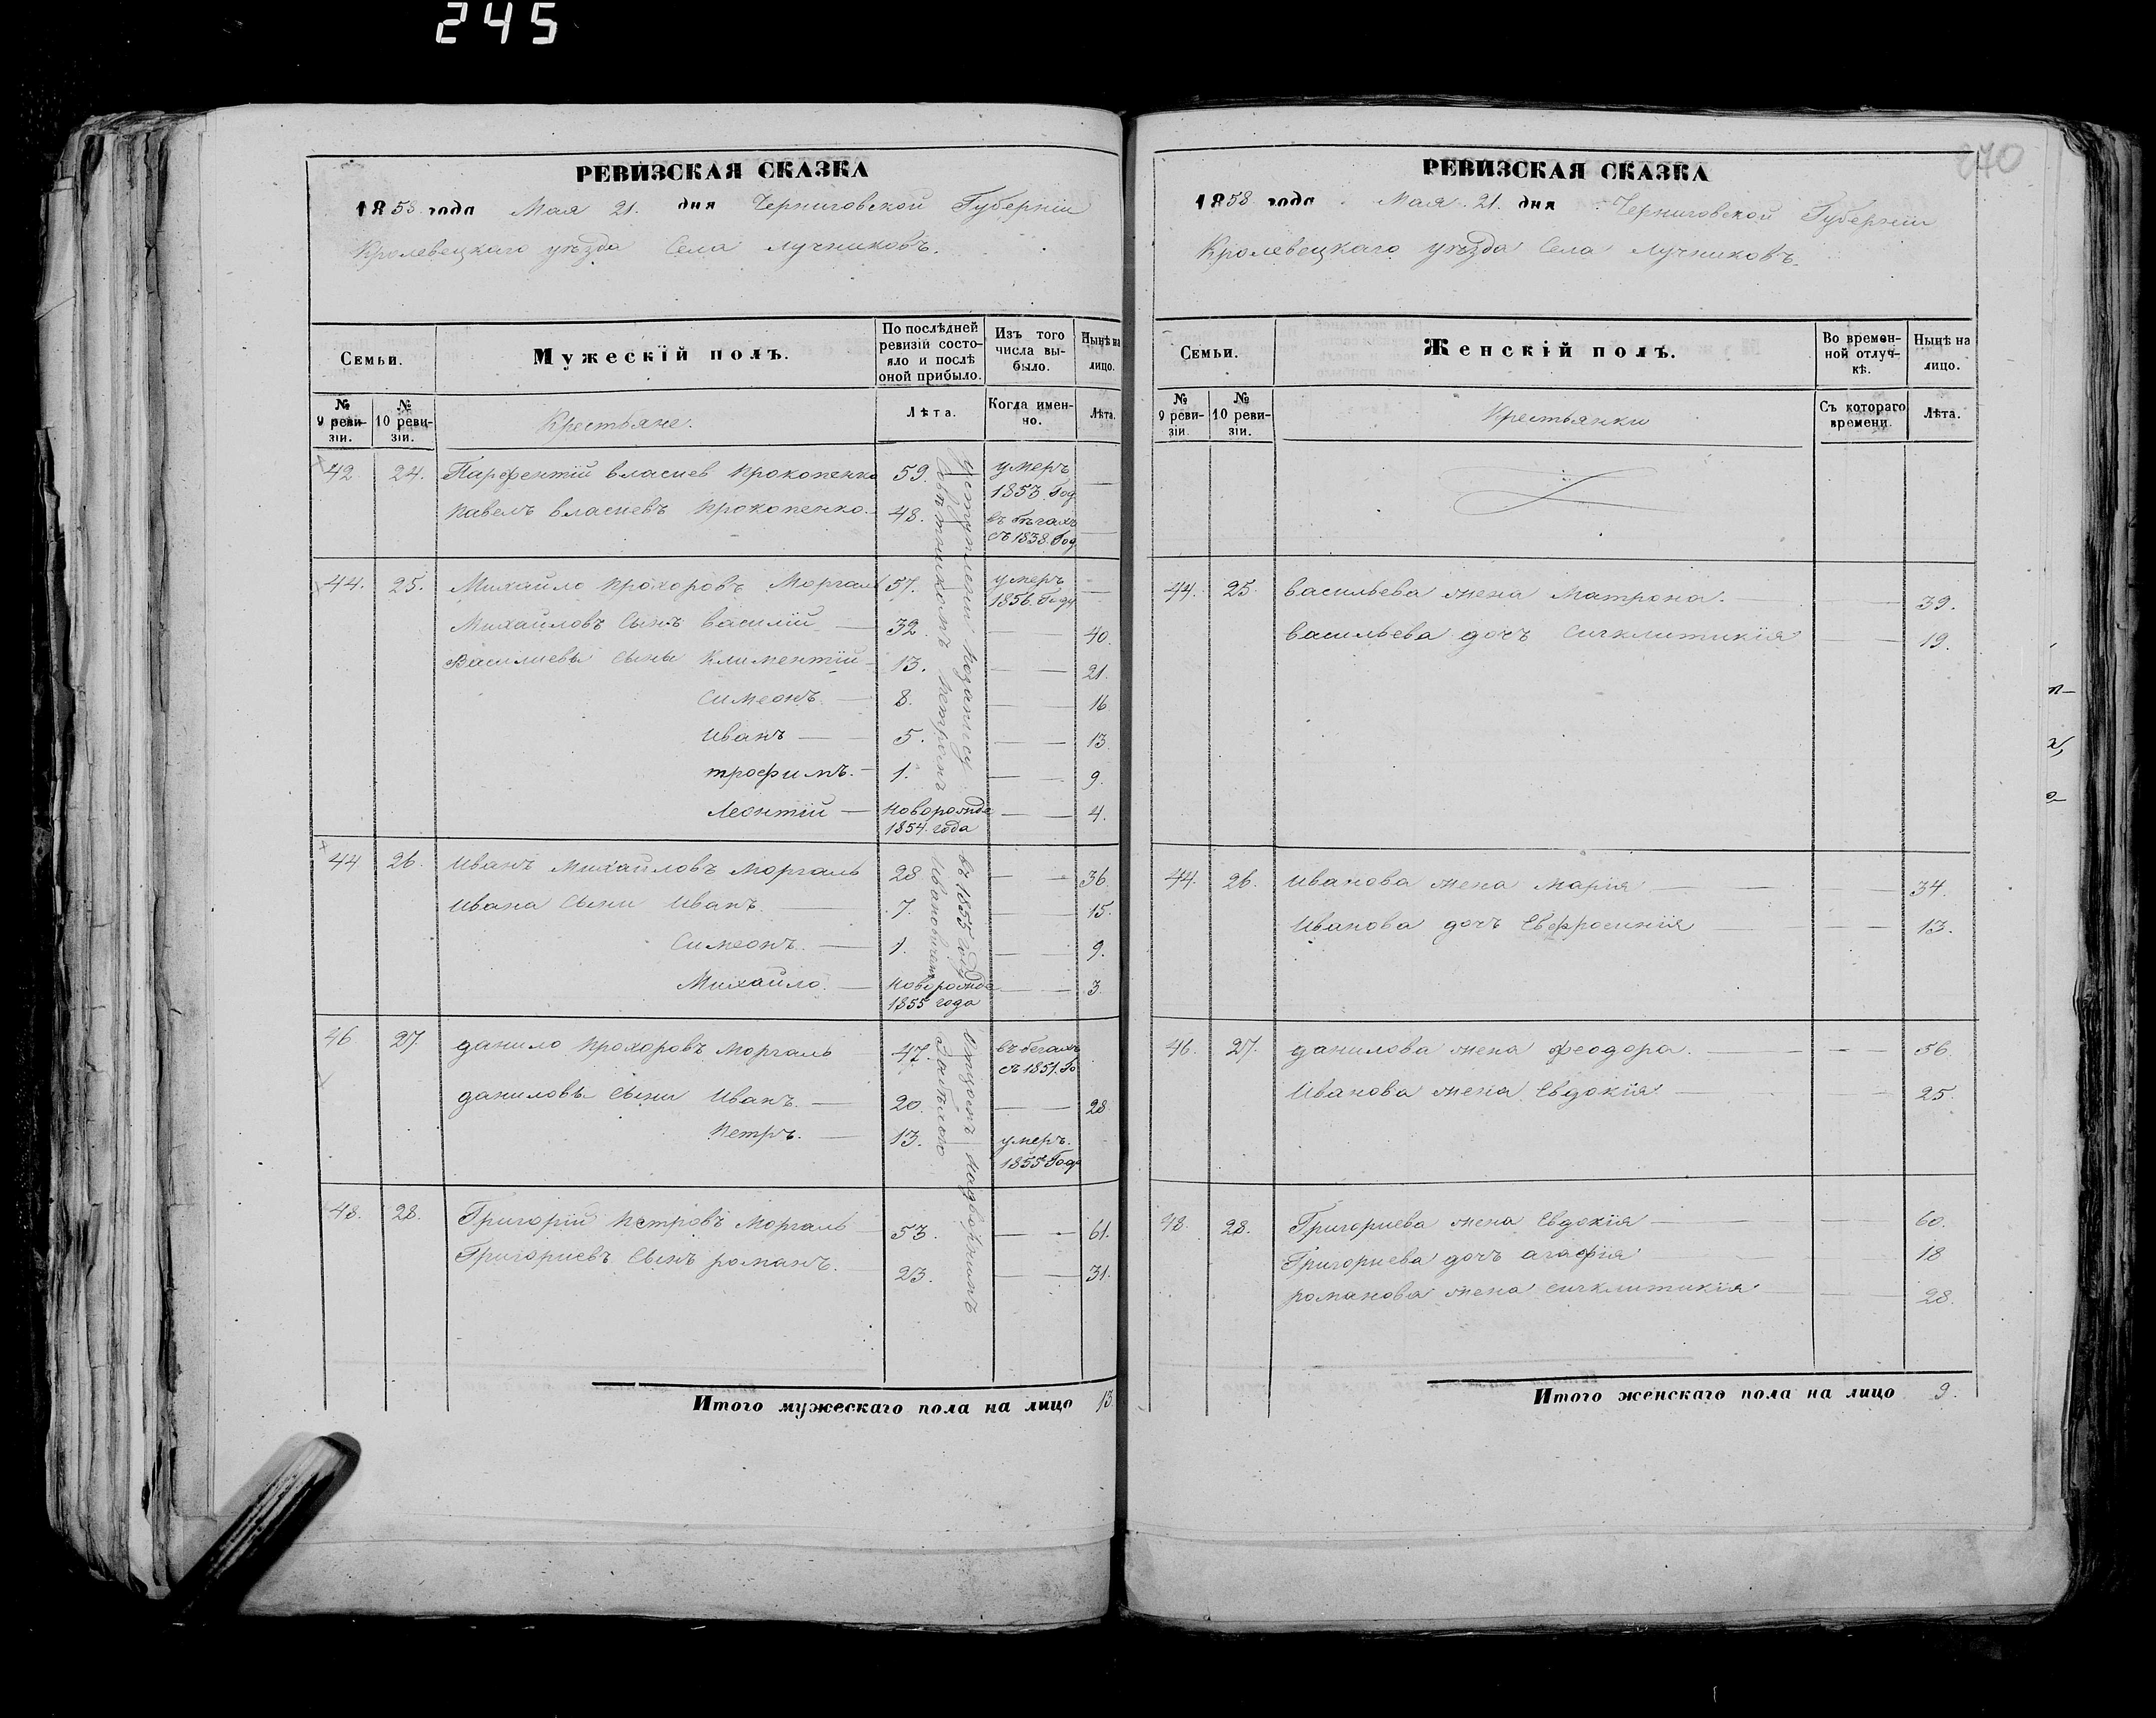 245
РЕВИЗСКАЯ СКАЗКА
1858 года Мая 21. дня Черниговской Губерніи
Кролевецкаго уѣзда Села Лучниковъ.
Семьи.
Мужескій полъ.
По послѣдней ревизіи состояло и послѣ оной прибыло.
Изъ того числа выбыло.
Нынѣ на лицо.
№ 9 ревизіи.
№ 10 ревизіи.
Крестьяне.
Лѣта.
Когда именно.
Лѣта.
42 24. Парфентій власиев Прокопенко 59. умеръ 1853 Год —
Павелъ власиевъ Прокопенко. 48. въ бѣгахъ съ 1838. Год —
44. 25. Михайло Прохоровъ Моргаль 57. умеръ 1856. Году —
Михайловъ Сынъ василій — 32. — — 40.
Василиевы Сыны Климентій — 13. — — 21.
Симеонъ — 8. — — 16
Иванъ — 5. — — 13.
трофимъ. — 1. — — 9.
Леонтій — новорожде 1854. года — — 4.
44 26. Иванъ Михайловъ Моргаль 28 — — 36.
Ивана Сыни Иванъ. — 7. — — 15.
Симеонъ. — 1. — — 9.
Михайло. — новорожде 1855 года — — 3.
46 27. данило Прохоровъ Моргаль 47. въ бегахъ съ 1851. Го
даниловы Сыни Иванъ. — 20. — — 28
Петръ. — 13. — умеръ. 1855 Году
48. 28. Григорій Петровъ Моргаль 53. — — 61.
Григориевъ Сынъ романъ. 23. — — 31.
Итого мужескаго пола на лицо 13.
въ 1855 году
петромъ Ивановичем
270
РЕВИЗСКАЯ СКАЗКА
1858 года Мая. 21. дня Черниговской Губерніи
Кролевецкаго уѣзда Села Лучниковъ.
Семьи.
Женскій полъ.
Во временной отлучкѣ.
Нынѣ на лицо.
№ 9 ревизіи.
№ 10 ревизіи.
Крестьянки
Съ котораго времени.
Лѣта.
44. 25. васильева жена Матрона. — — 39.
васильева дочъ Сигклитикія — — 19.
44. 26. Иванова жена Марія — — 34.
Иванова дочъ Евфросинія — — 13.
46. 27. данилова жена феодора. — — 56.
Иванова жена Евдокія — — 25.
48. 28. Григориева жена Евдокія — — 60.
Григориева дочъ агафія — — 18
романова жена сигклитикія — — 28.
Итого женскаго пола на лицо 9.